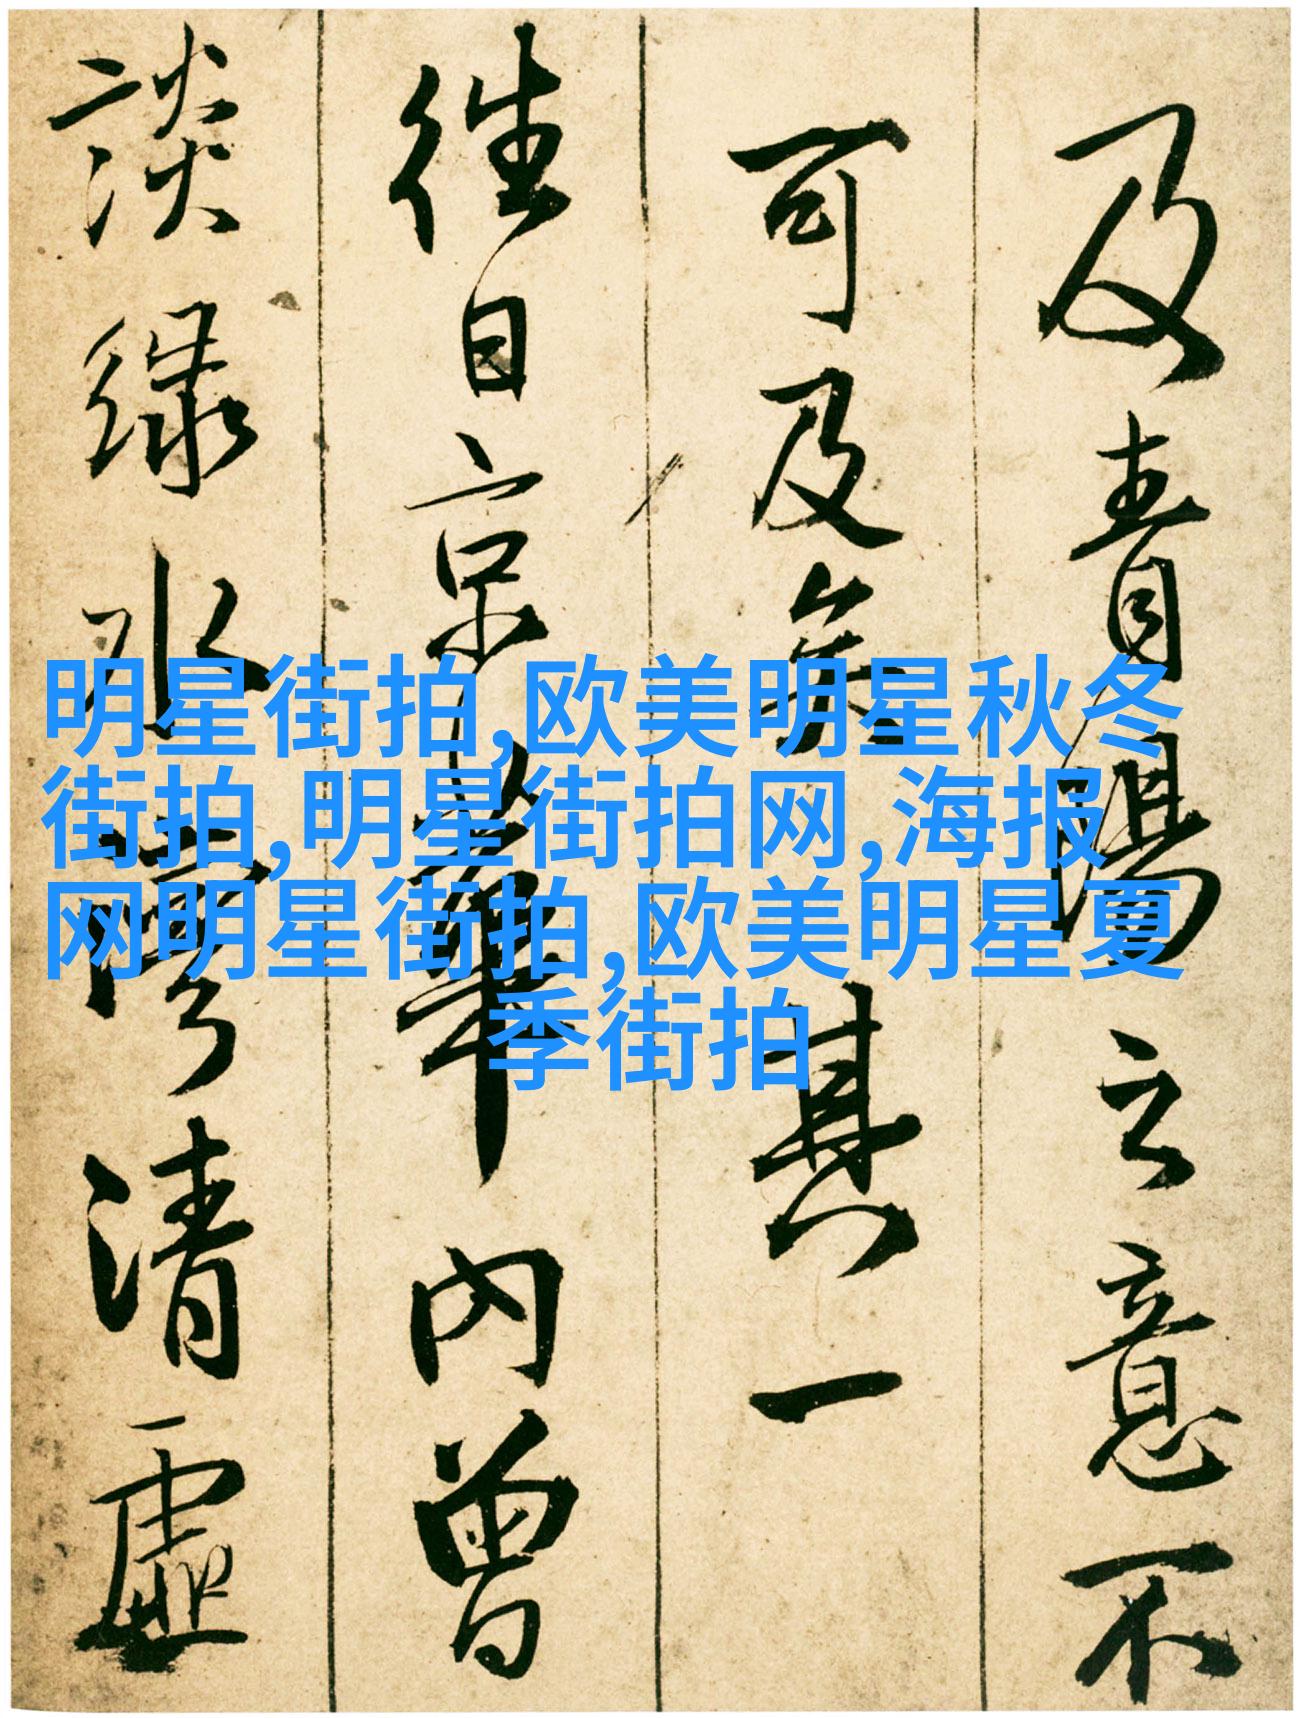 及青陽之意不
可及矣 其一
往日京華內曾
談綠水灣清虛
明星街拍,欧美明星秋冬
街拍,明星街拍网,海报
网明星街拍,欧美明星夏
季街拍